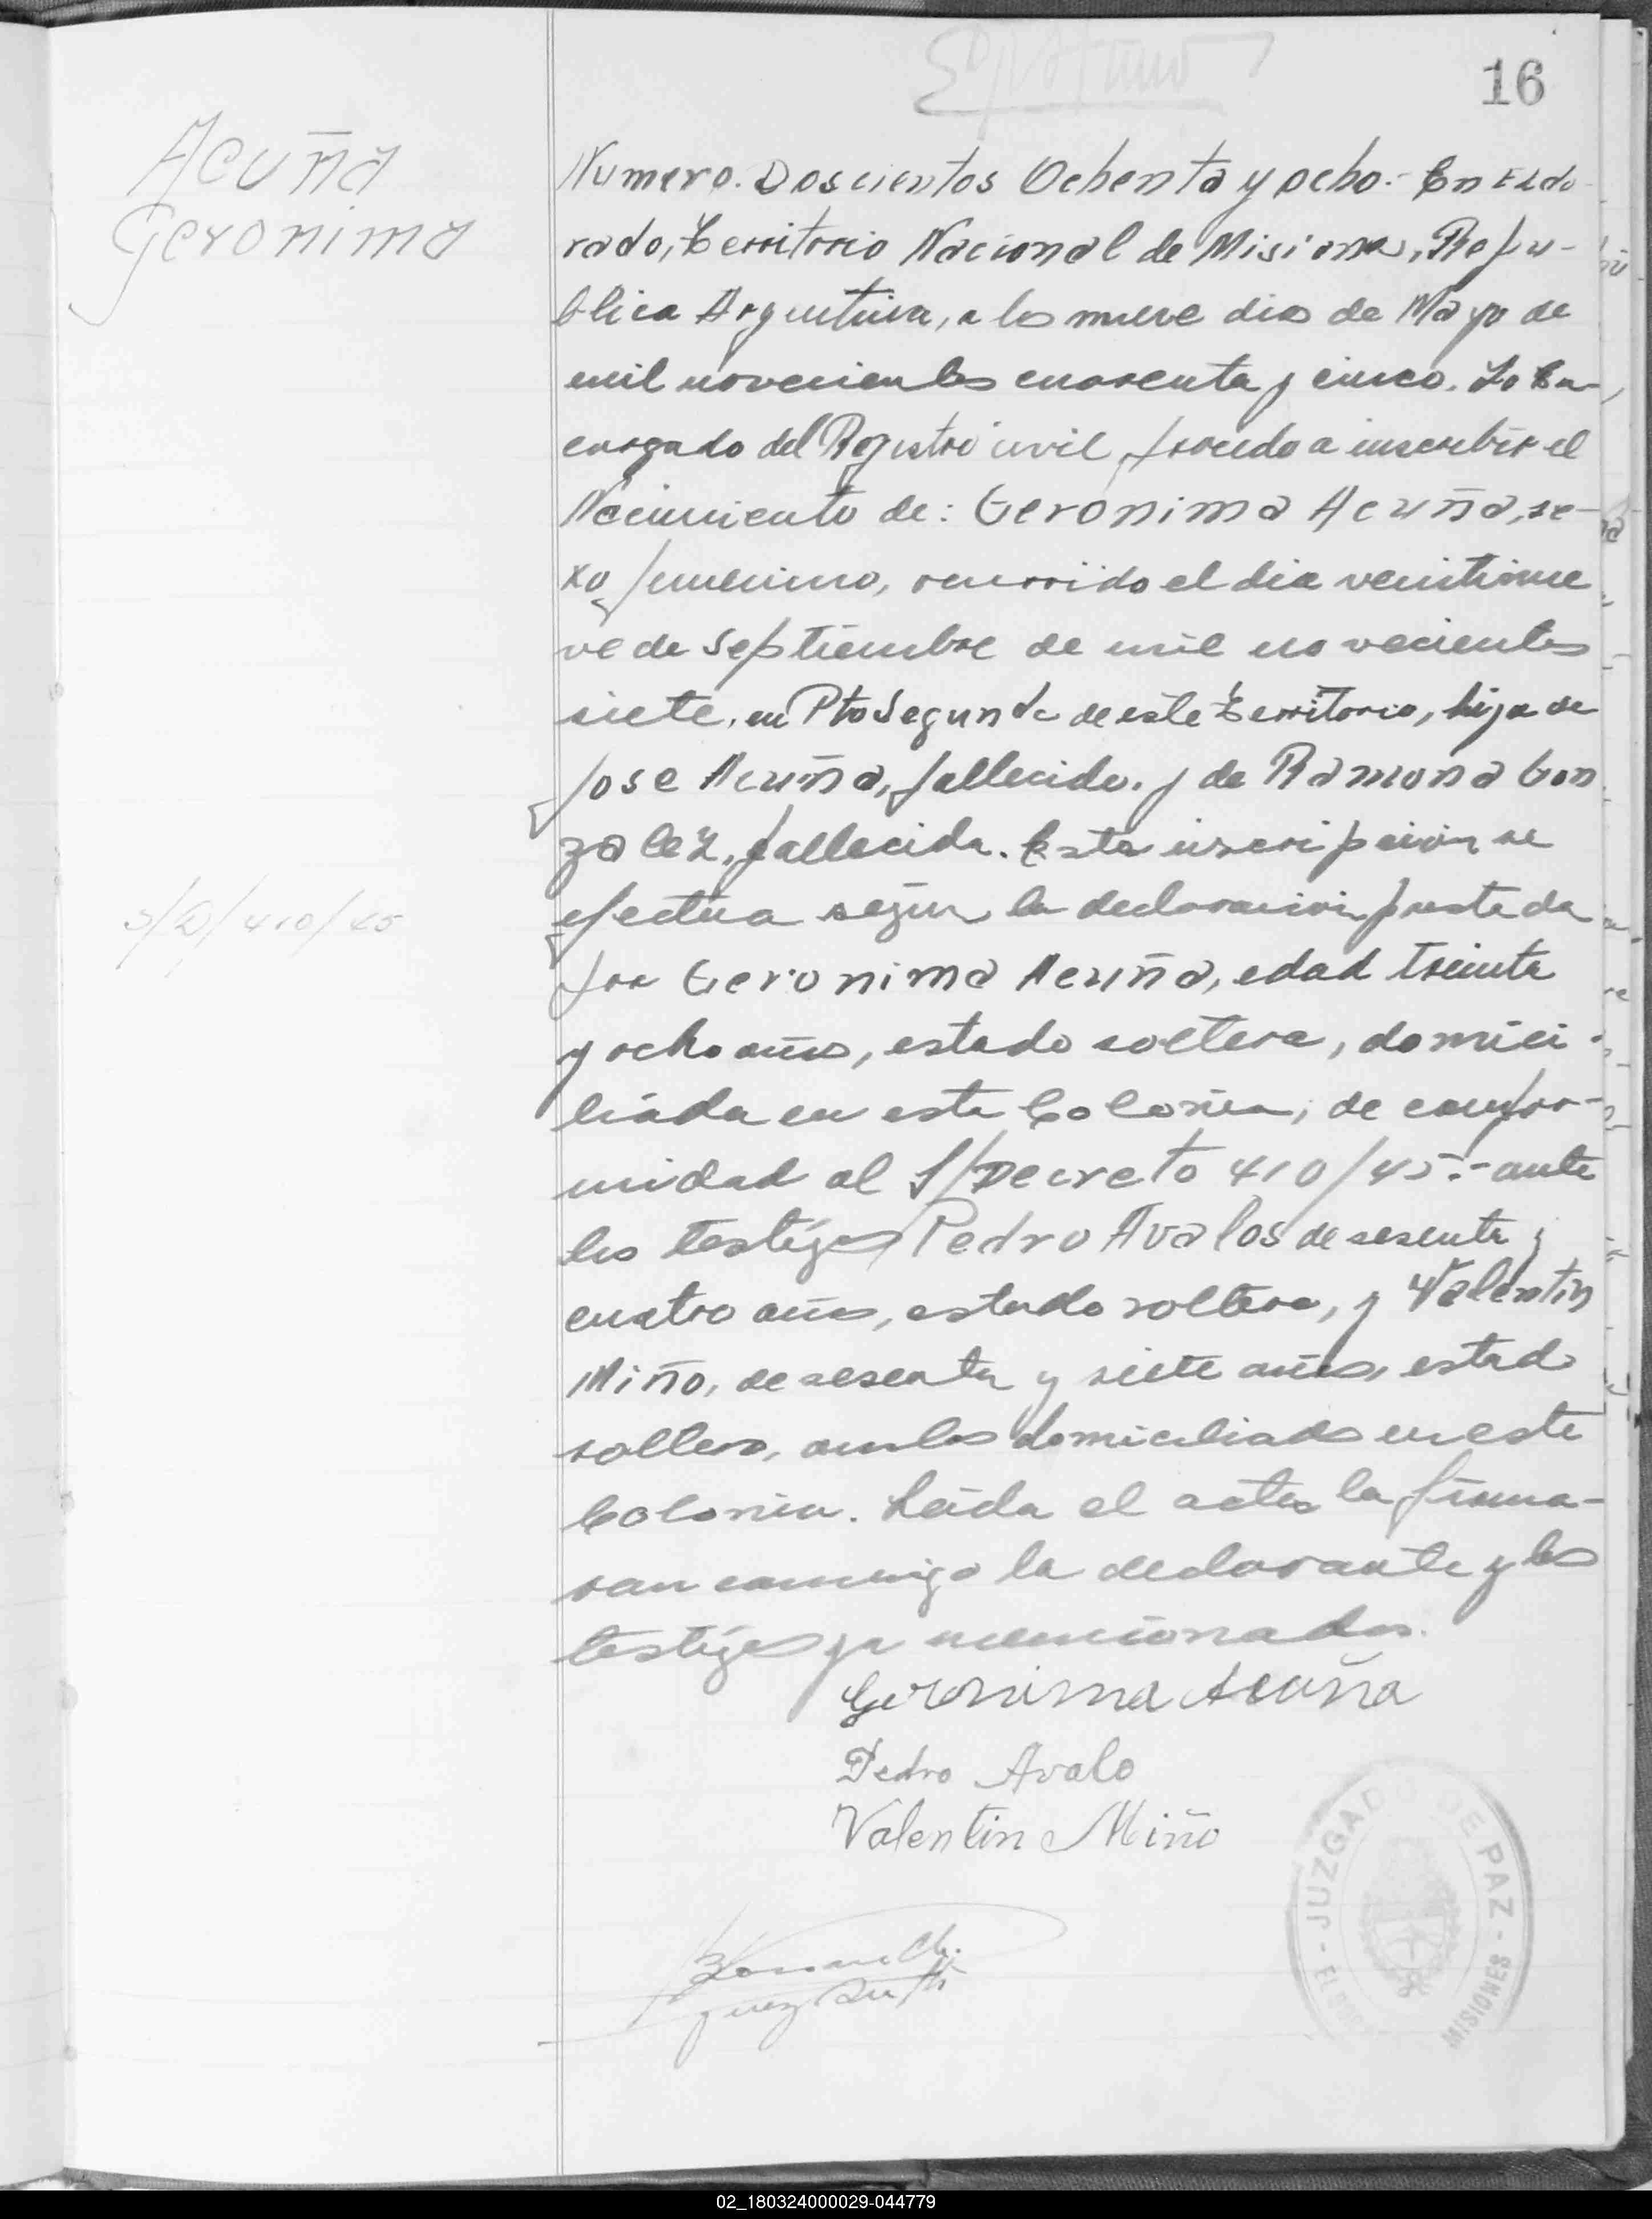 16
Acuña
Geronima
Numero. Doscientos Ochenta y ocho.- En Eldo-
rado, Territorio Nacional de Misiones, Repu-
blica Argentina, a los nueve dias de Mayo de
mil novecientos cuarenta y cinco. Yo En-
cargado del Registro civil, procedo a inscribir el
Nacimiento de: Geronima Acuña, se-
xo femenino, ocurrido el dia veintinue
ve de septiembre de mil novecientos
siete, en Pto Segundo de este Territorio, hija de
Jose Acuña, fallecido. y de Ramona Gon
zalez, fallecida. Esta inscripcion se
efectúa según la declaracion prestada
S/D/410/45
por Geronima Acuña, edad treinta
y ocho años, estado soltera, domici-
liada en esta Colonia, de confor-
midad al S/Decreto 410/45.- ante
los testigos Pedro Avalos de sesenta y
cuatro años, estado soltero, y Valentin
Miño, de sesenta y siete años, estado
soltero, ambos domiciliados en esta
Colonia. Leida el acta la firma-
ran conmigo la declarante y los
testigos ya mencionados.
Geronima Acuña
Pedro Avalo
Valentin Miño
JUZGADO DE PAZ
MISIONES
02_180324000029-044779